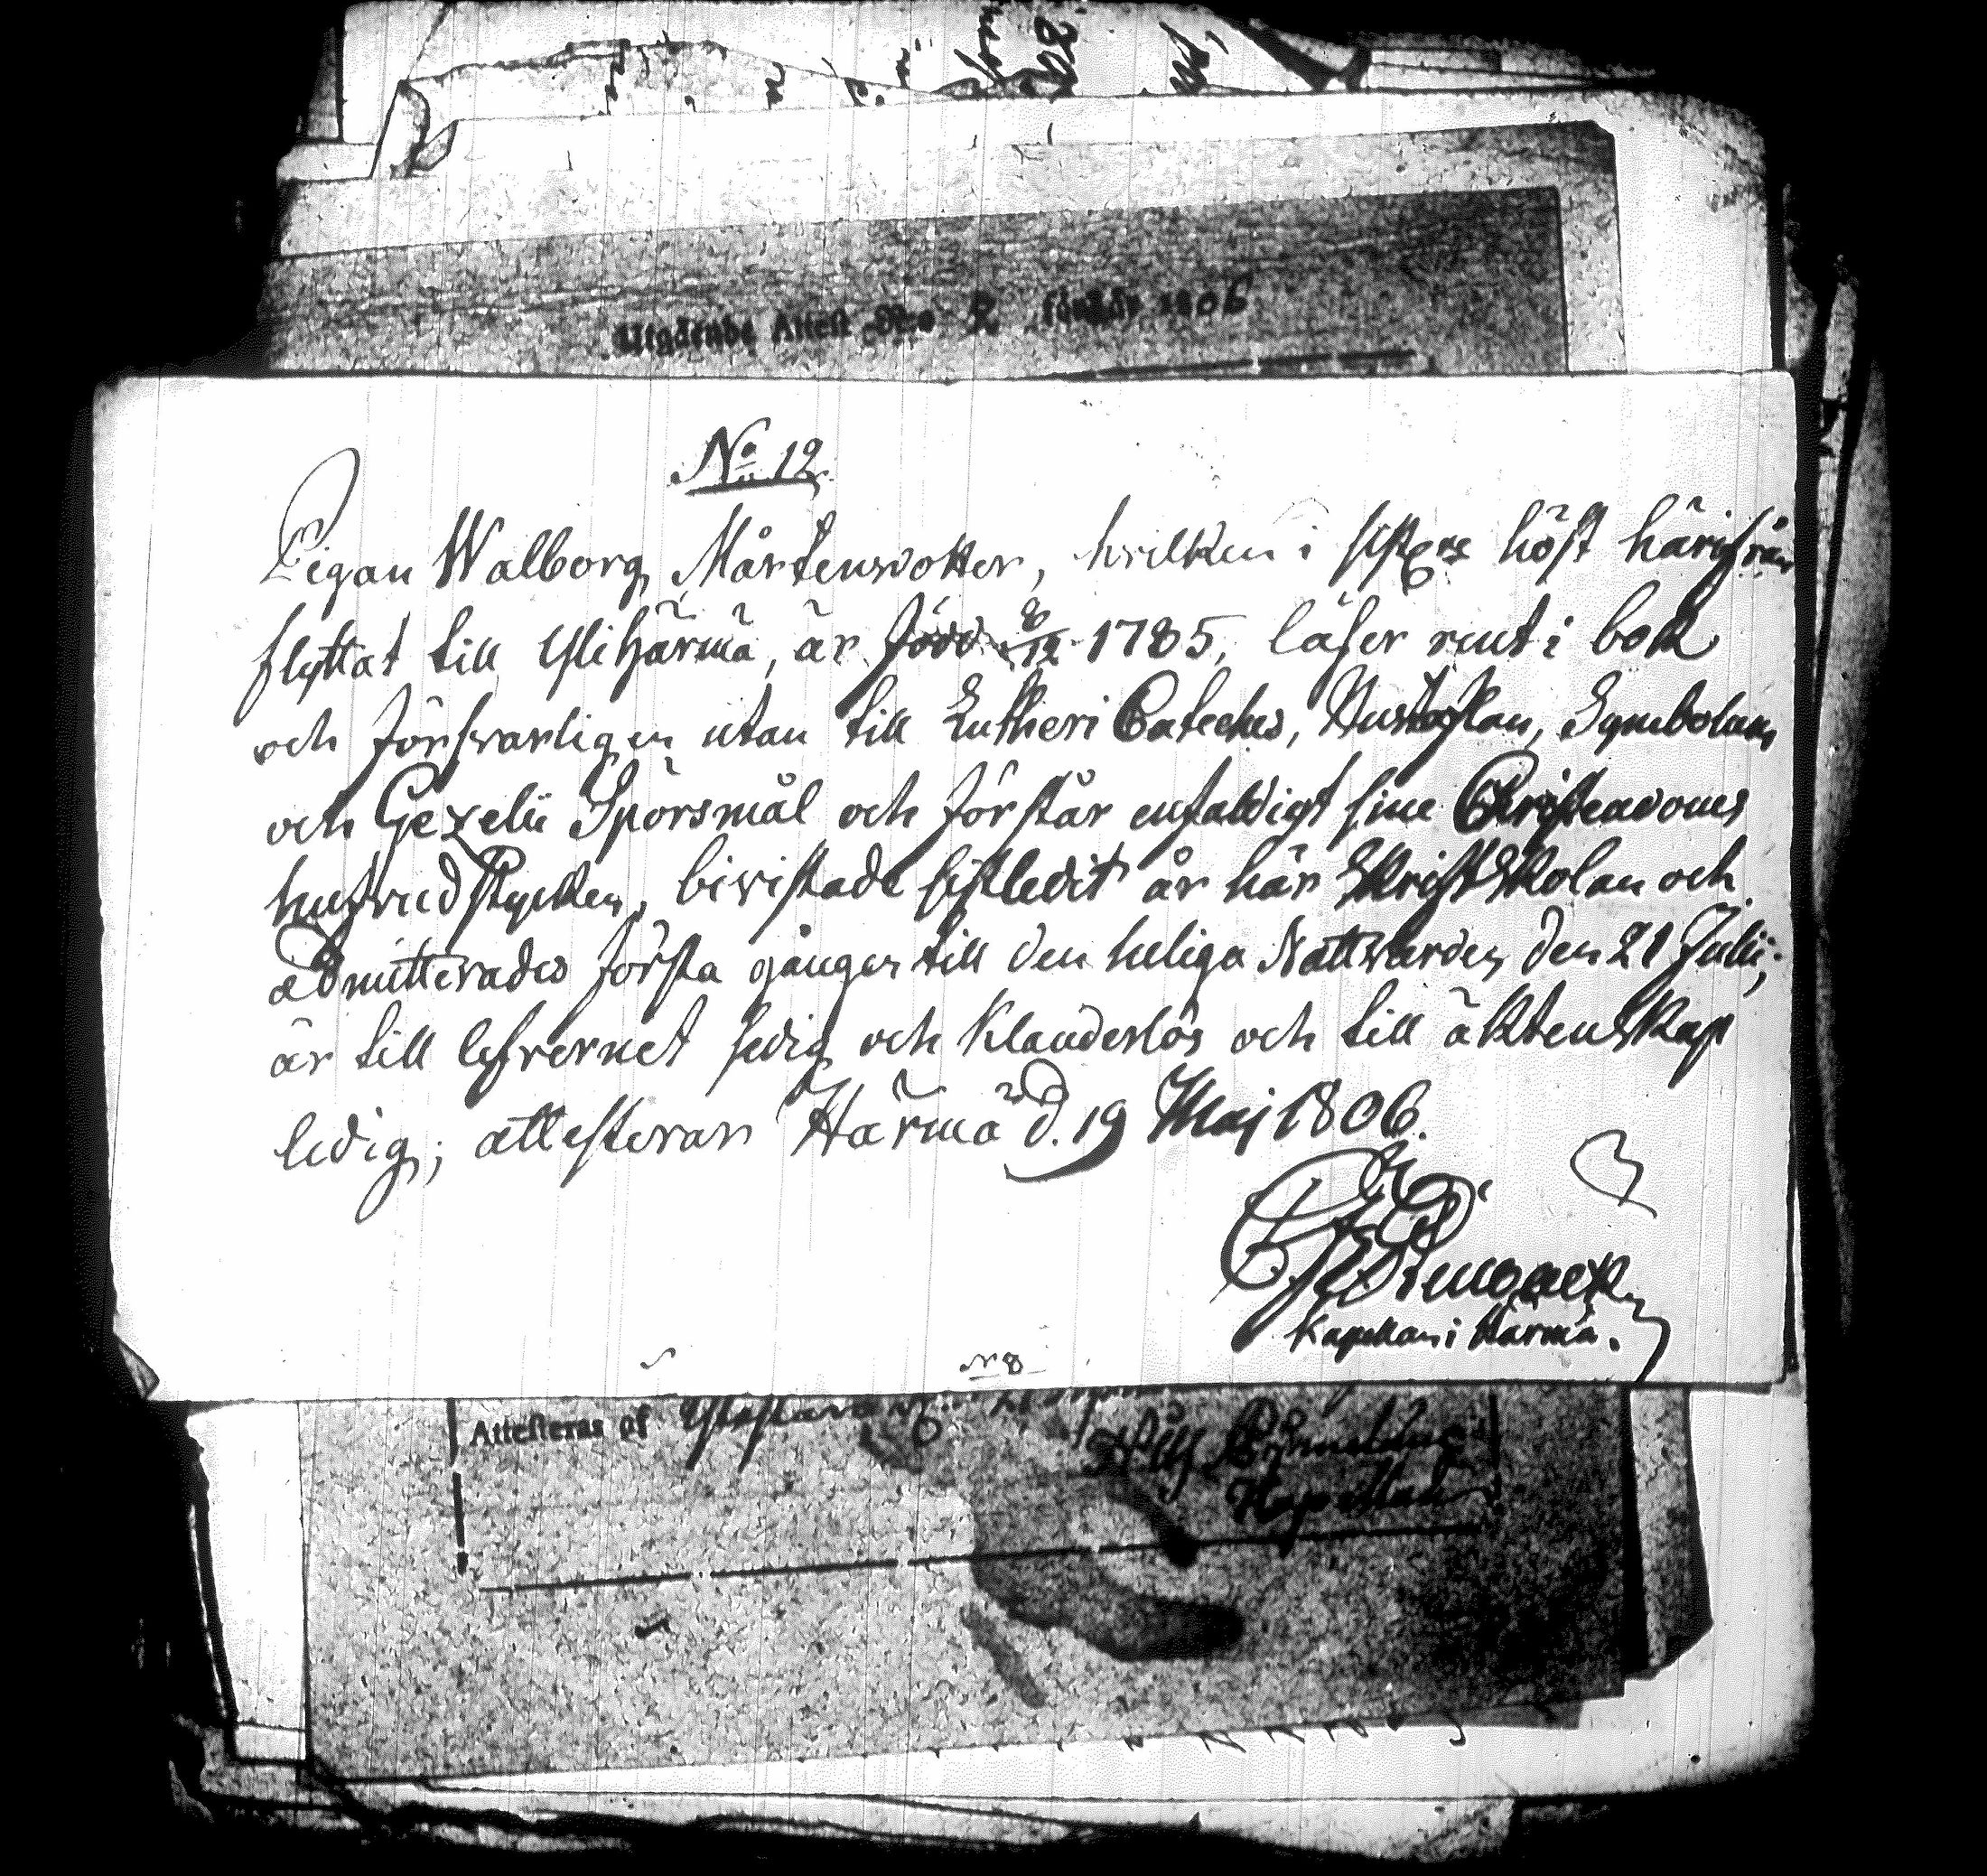 Utgående Attest No 2 för År 1806
No 12.
Pigan Walborg Mårtensdotter, hvilken i sistne höst härifrån
flyttat till Ylihärmä, är född 8/12 1785, läser rent i bok
och försvarligen utan till Lutheri Cateches, Hustaflan, Symbolum
och Gezelii Spörsmål och förstår enfaldigt sine Christendoms
hufvudstycken, bivistade sistledit år här Skriftskolan och
admitterades första gången till den heliga Nattvarden den 21 Julii;
är till lefvernet sedig och klanderlös och till äktenskap
ledig; attesterar Härmä d. 19 Maj 1806.
Kapellan i Härmä.
N 8
Attesteras af
Kapellan